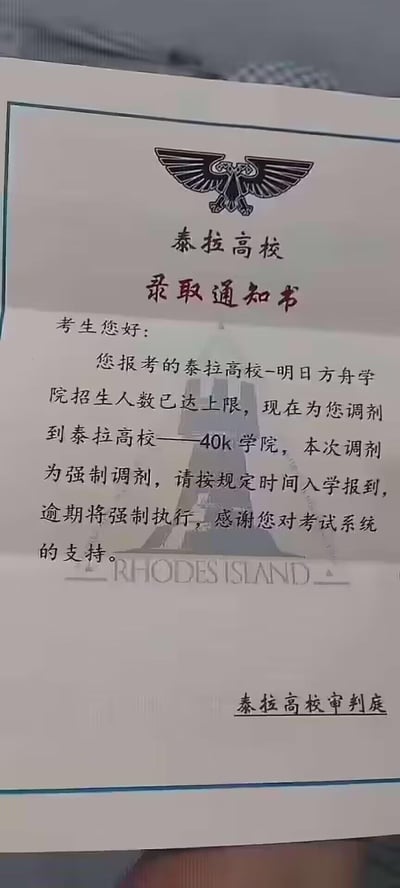 泰拉高校
录取通知书
考生您好：
您报考的泰拉高校-明日方舟学
院招生人数已达上限，现在为您调剂
到泰拉高校——40k 学院，本次调剂
为强制调剂，请按规定时间入学报到，
逾期将强制执行，感谢您对考试系统
的支持。
RHODES ISLAND
泰拉高校审判庭